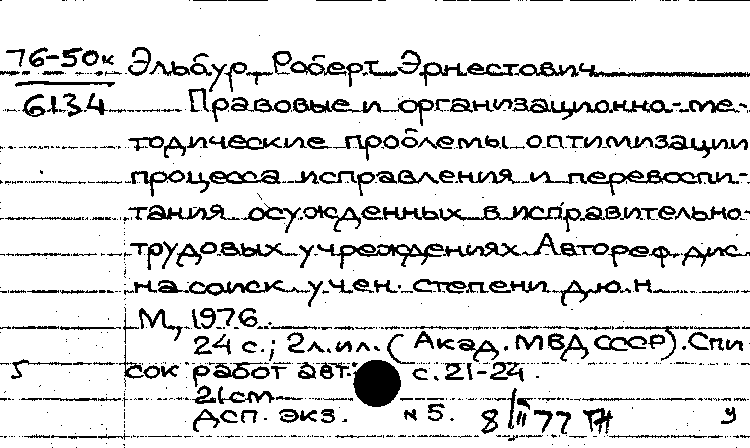 76-50к Эльбур, Роберт Эрнестович
6134 Правовые и организационно-ме-
тодические проблемы оптимизации
процесса исправления и перевоспи-
тания осужденных в исправительно-
трудовых учреждениях. Автореф. дис.
на соиск. учен. степени д.ю.н.
М., 1976.
24 с.; 2л.ил. (Акад. МВД СССР). Спи
5 сок работ авт. с. 21-24.
21см
ДСП. экз. N 5. 8/II 77 у